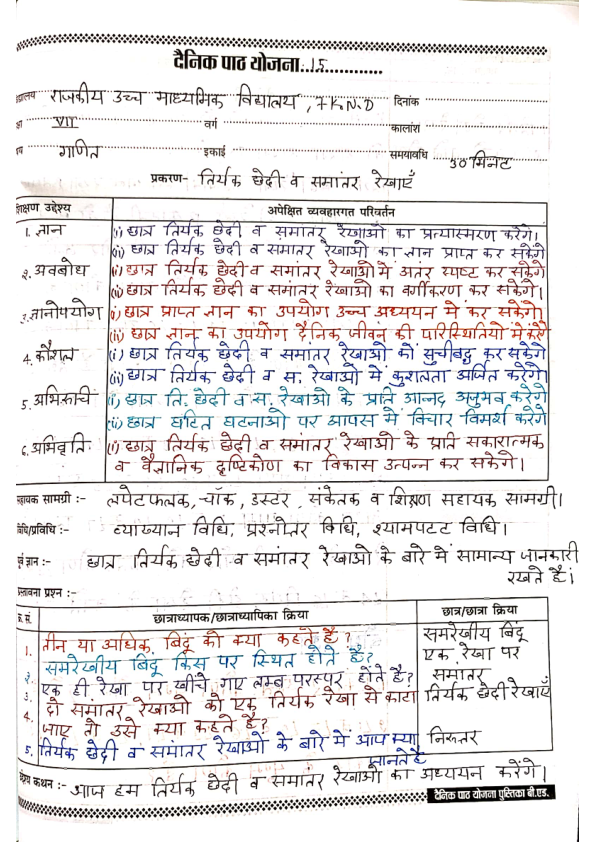 दैनिक पाठ योजना..15............
राजकीय उच्च माध्यमिक विद्यालय, 7K.N.D दिनांक
VII वर्ग कालांश
गणित इकाई समयावधि 30 मिनट
प्रकरण- तिर्यक छेदी व समांतर रेखाएँ
शिक्षण उद्देश्य अपेक्षित व्यवहारगत परिवर्तन
1. ज्ञान (i) छात्र तिर्यक छेदी व समांतर रेखाओं का प्रत्यास्मरण करेंगे।
(ii) छात्र तिर्यक छेदी व समांतर रेखाओं का ज्ञान प्राप्त कर सकेंगे
2. अवबोध (i) छात्र तिर्यक छेदी व समांतर रेखाओं में अंतर स्पष्ट कर सकेंगे
(ii) छात्र तिर्यक छेदी व समांतर रेखाओं का वर्गीकरण कर सकेंगे।
3. ज्ञानोपयोग (i) छात्र प्राप्त ज्ञान का उपयोग उच्च अध्ययन में कर सकेंगे।
(ii) छात्र ज्ञान का उपयोग दैनिक जीवन की परिस्थितियों में करेंगे
4. कौशल (i) छात्र तिर्यक छेदी व समांतर रेखाओं को सुचीबद्ध कर सकेंगे
(ii) छात्र तिर्यक छेदी व स. रेखाओं में कुशलता अर्जित करेंगे।
5. अभिरूचि (i) छात्र ति. छेदी व स. रेखाओं के प्रति आनन्द अनुभव करेंगे
(ii) छात्र घटित घटनाओं पर आपस में विचार विमर्श करेंगे
6. अभिवृति (i) छात्र तिर्यक छेदी व समांतर रेखाओं के प्रति सकारात्मक
व वैज्ञानिक दृष्टिकोण का विकास उत्पन्न कर सकेंगे।
सहायक सामग्री :- लपेटफलक, चॉक, डस्टर, संकेतक व शिक्षण सहायक सामग्री।
विधि/प्रविधि :- व्याख्यान विधि, प्रश्नोतर विधि, श्यामपटट विधि।
पूर्व ज्ञान :- छात्र तिर्यक छेदी व समांतर रेखाओं के बारे में सामान्य जानकारी
रखते है।
प्रस्तावना प्रश्न :-
क्र. सं. छात्राध्यापक/छात्राध्यापिका क्रिया छात्र/छात्रा क्रिया
1. तीन या अधिक बिंदू को क्या कहते है ? समरेखीय बिंदू
2. समरेखीय बिंदू किस पर स्थित होते है? एक रेखा पर
3. एक ही रेखा पर खींचे गए लम्ब परस्पर होते है? समातर
4. दो समांतर रेखाओं को एक तिर्यक रेखा से काटा तिर्यक छेदी रेखाएँ
जाए तो उसे क्या कहते है?
5. तिर्यक छेदी व समांतर रेखाओं के बारे में आप क्या निरूतर
जानते है
उद्देश्य कथन :- आज हम तिर्यक छेदी व समांतर रेखाओं का अध्ययन करेंगे।
दैनिक पाठ योजना पुस्तिका बी.एड.